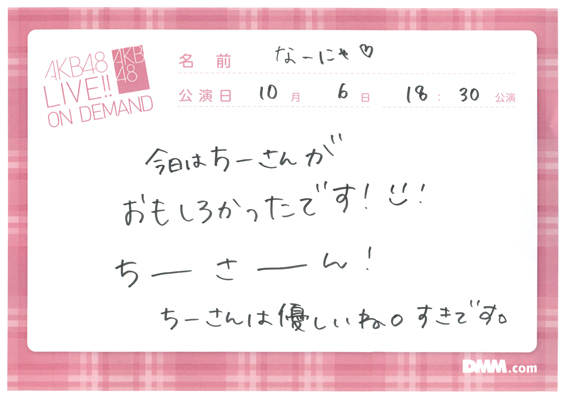 AKB48
LIVE!!
ON DEMAND
AKB
48
名前 なーにゃ♡
公演日 10月 6日 18:30 公演
今日はちーさんが
おもしろかったです!☺!
ちーさーん!
ちーさんは優しいね。すきです。
DMM.com